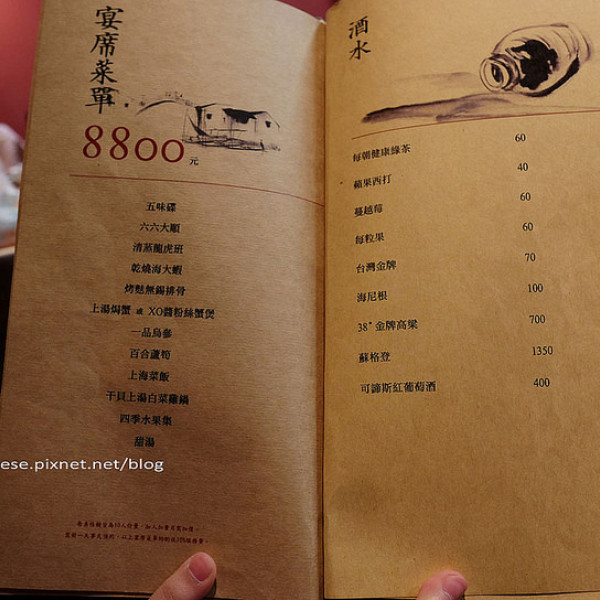 宴席菜單
8800元
五味碟
六六大順
清蒸龍虎班
乾燒海大蝦
烤麩無錫排骨
上湯焗蟹 或 XO醬粉絲蟹煲
一品烏參
百合蘆筍
上海菜飯
干貝上湯白菜雞鍋
四季水果集
甜湯
ese.pixnet.net/blog
酒水
每朝健康綠茶 60
蘋果西打 40
蔓越莓 60
每粒果 60
台灣金牌 70
海尼根 100
38°金牌高粱 700
蘇格登 1350
可諦斯紅葡萄酒 400